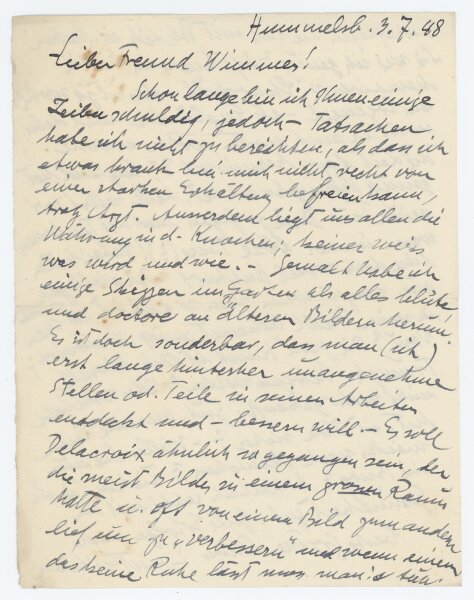 Himmelsb. 3.7.48
Lieber Freund Wimmer!
Schon lange bin ich Ihnen einige
Zeilen schuldig; jedoch – Tatsachen
habe ich nicht zu berichten, als dass ich
etwas krank bin mich nicht recht von
einer starken Erkältung befreien kann,
trotz Arzt. Ausserdem liegt uns allen die
Währung in d. Knochen; keiner weiss
was wird und wie. – Gemalt habe ich
einige Skizzen im Garten als alles blühte
und doctore an älteren Bildern herum
Es ist doch sonderbar, dass man (ich)
erst lange hinterher unangenehme
Stellen od. Teile in seinen Arbeiten
entdeckt und – bessern will. – Es soll
Delacroix ähnlich so gegangen sein, der
die meist Bilder in einem grossen Raum
hatte u. oft von einem Bild zum andern
lief um zu „verbessern" und wenn einem
das keine Ruhe lässt muss man's tun.